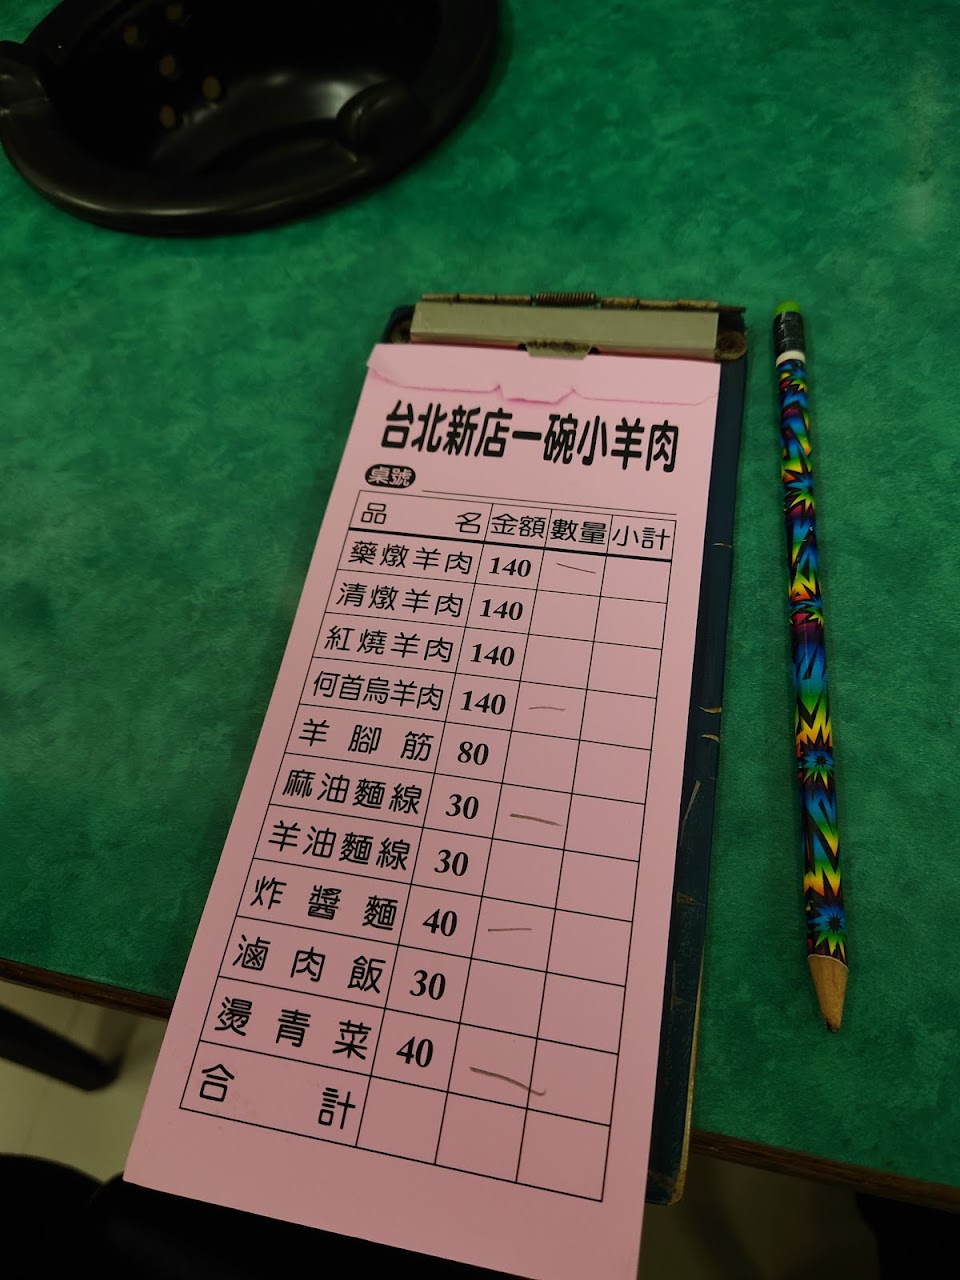 台北新店一碗小羊肉
桌號
品名 金額 數量 小計
藥燉羊肉 140 一
清燉羊肉 140
紅燒羊肉 140
何首烏羊肉 140 一
羊腳筋 80
麻油麵線 30 一
羊油麵線 30
炸醬麵 40 一
滷肉飯 30
燙青菜 40 一
合計